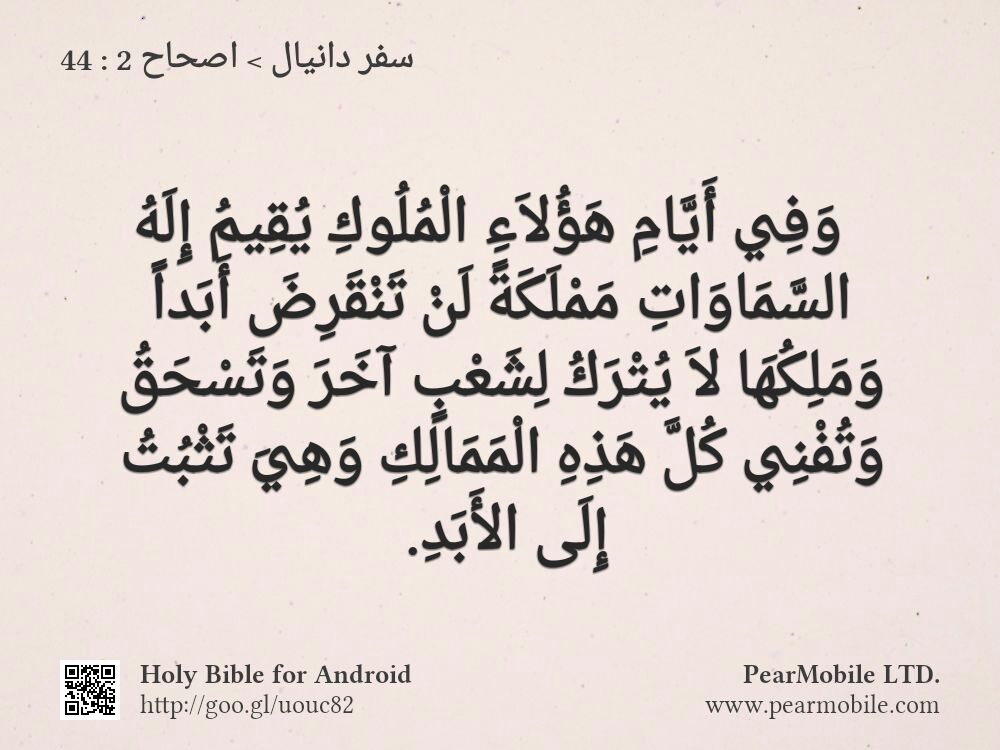 سفر دانيال > اصحاح 2 : 44
وَفِي أَيَّامِ هَؤُلاَءِ الْمُلُوكِ يُقِيمُ إِلَهُ
السَّمَاوَاتِ مَمْلَكَةً لَنْ تَنْقَرِضَ أَبَداً
وَمَلِكُهَا لاَ يُتْرَكُ لِشَعْبٍ آخَرَ وَتَسْحَقُ
وَتُفْنِي كُلَّ هَذِهِ الْمَمَالِكِ وَهِيَ تَثْبُتُ
إِلَى الأَبَدِ.
Holy Bible for Android
http://goo.gl/uouc82
PearMobile LTD.
www.pearmobile.com